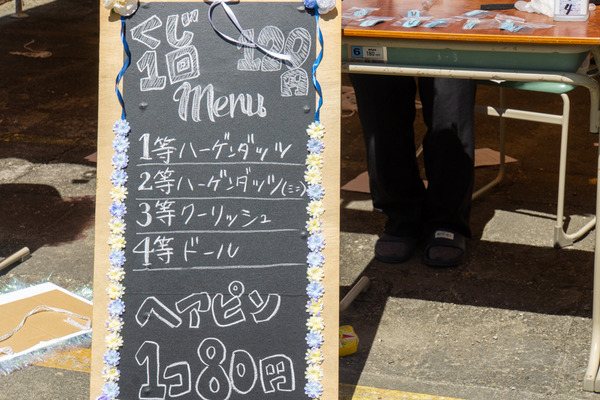 くじ
1回 120円
Menu
1等ハーゲンダッツ
2等ハーゲンダッツ(ミニ)
3等クーリッシュ
4等ドール
ヘアピン
1コ80円
6
4